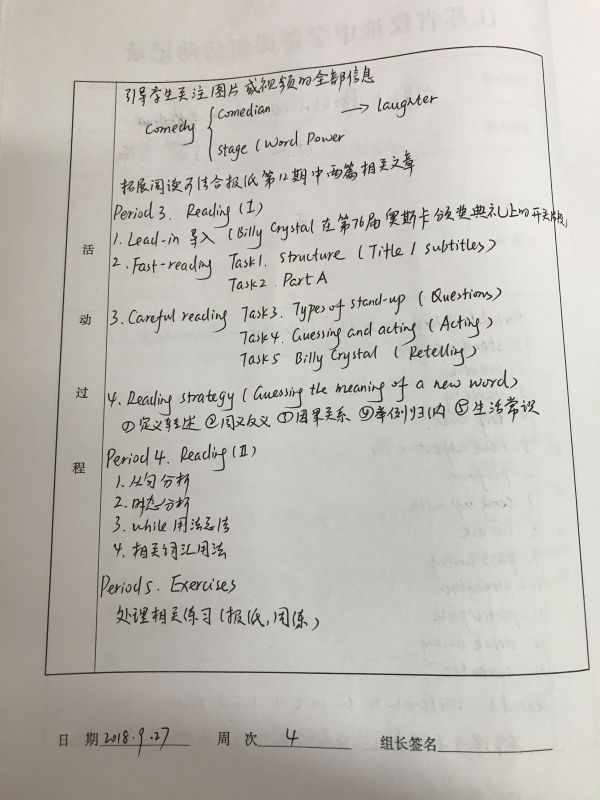 引导学生关注图片或视频的全部信息
Comedy { comedian → laughter
stage (Word Power
拓展阅读可结合报纸第12期中两篇相关文章
Period 3. Reading (I)
1. Lead-in 导入 (Billy Crystal 在第76届奥斯卡颁奖典礼上的开头片段)
2. Fast-reading Task1. structure (Title / subtitles)
Task2. Part A
3. Careful reading Task3. Types of stand-up (Questions)
Task4. Guessing and acting (Acting)
Task5 Billy Crystal (Retelling)
4. Reading strategy (Guessing the meaning of a new word)
①定义转述 ②同义反义 ①因果关系 ④举例归纳 ⑤生活常识
Period 4. Reading (II)
1. 从句分析
2. 时态分析
3. while 用法总结
4. 相关词汇用法
Period 5. Exercises
处理相关练习(报纸,周练)
活动过程
日 期 2018.9.27 周 次 4 组长签名